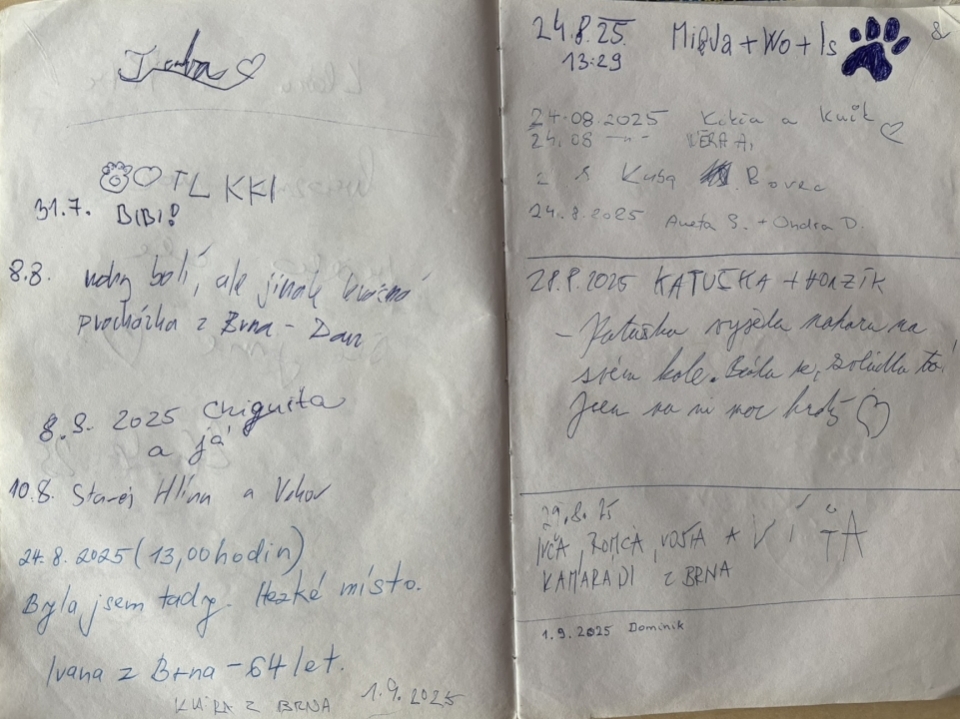 TL KKI
31.7. BIBI!
8.8. nohy bolí, ale jinak krásná
procházka z Brna - Dan
8.8. 2025 Chiquita
a já
10.8. Starej Hlína a Vohov
24.8.2025 (13,00 hodin)
Byla jsem tady. Hezké místo.
Ivana z Brna - 64 let.
KLÁRA Z BRNA 1.9.2025
24.8.25 MiQVa + Wo + Is &
13:29
24.08.2025 Kikia a Kuık
24.08 -"- VĚRA A,
Kuba Bovec
24.8.2025 Aneta S. + Ondra D.
28.8.2025 KATUŠKA + HONZÍK
- Katuška vyjela nahoru na
svém kole. Bála se, zvládla to!
Jsem na ni moc hrdý
29.8.25
IVČA, ROMČA, VOJTA A VÍŤA
KAMARÁDI Z BRNA
1.9.2025 Dominik